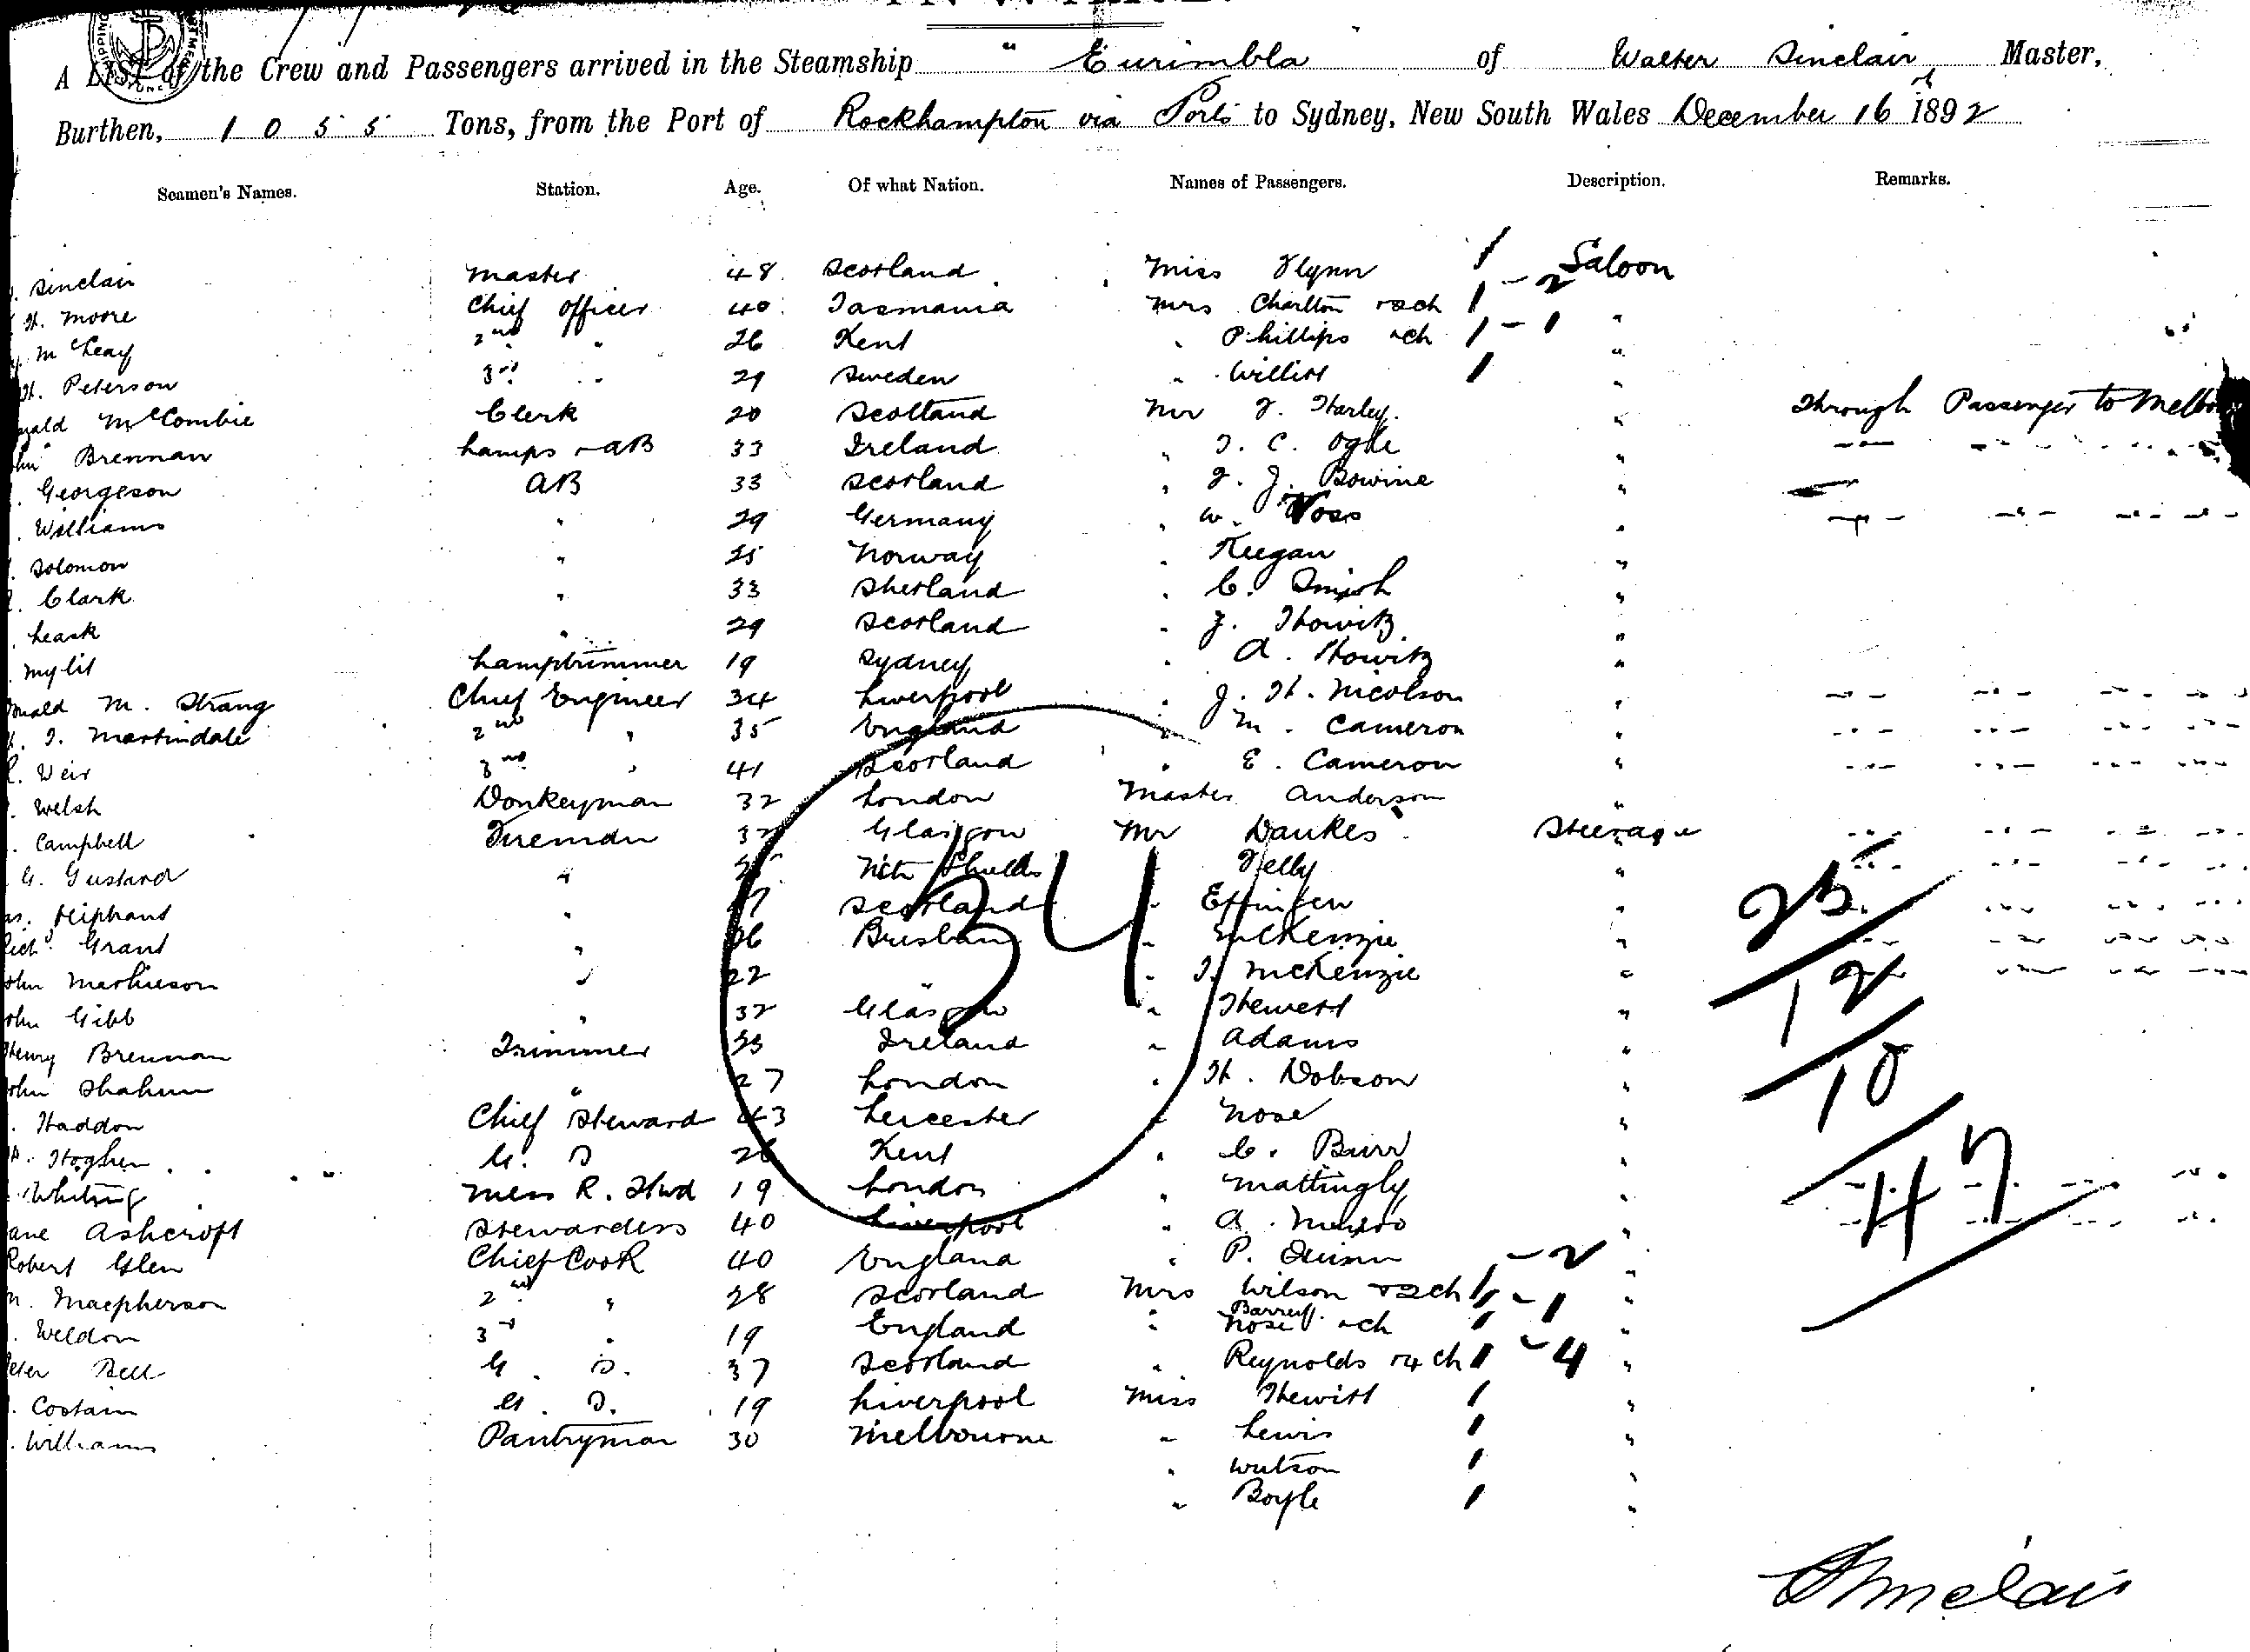 A LIST of the Crew and Passengers arrived in the Steamship " Eurimbla " of Walter Sinclair Master,
Burthen, 1055 Tons, from the Port of Rockhampton via Ports to Sydney, New South Wales December 16th 1892
Seamen's Names. Station. Age. Of what Nation. Names of Passengers. Description. Remarks.
Sinclair Master 48 Scotland Miss Flynn 1 Saloon
H. Moore Chief Officer 40 Tasmania Mrs Charlton + 2 ch 1 - 2 "
McLeay 2nd " 26 Kent " Phillips + ch 1 - 1 "
H. Peterson 3rd " 29 Sweden " Willis 1 "
McCombie Clerk 20 Scotland Mr F. Harley "  Through Passenger to Melbo
Brennan Lamps + AB 33 Ireland " T. C. Ogle "
Georgeson AB 33 Scotland " F. J. Bowine "
Williams " 29 Germany " W. Voss "
Solomon " 25 Norway " Keegan "
Clark " 33 Shetland " C. Smith "
Leask " 29 Scotland " J. Howitz "
Mylit Lamptrimmer 19 Sydney " A. Howitz "
M. Strang Chief Engineer 34 Liverpool " J. H. Nicolson "
T. Martindale 2nd " 35 England " M. Cameron "
Weir 3rd " 41 Scotland " E. Cameron "
Welsh Donkeyman 32 London Master Anderson "
Campbell Fireman 32 Glasgow Mr Daukes Steerage
G. Gustard " Nth Shields " Felly "
Oliphant " Scotland " "
Richd. Grant " 26 Brisbane " McKenzie "
John Mathieson " 22 " " T. McKenzie "
John Gibb " 32 Glasgow " Hewett "
Henry Brennan Trimmer 23 Ireland " Adams "
John Shahun " 27 London " H. Dobson "
Haddon Chief Steward 43 Leicester " Nose "
Hoghen G. S 26 Kent " C. Burr "
Whiting Mess R. Stwd 19 London " Mattingly "
Jane Ashcroft Stewardess 40 Liverpool " A. Munro "
Robert Glen Chief Cook 40 England " P. Quinn "
Macpherson 2nd " 28 Scotland Mrs Wilson + 2 ch 1 - 2 "
Weldon 3rd " 19 England " Nose Barrett + ch 1 - 1 "
Peter Bell G. S. 37 Scotland " Reynolds + 4 ch 1 - 4 "
Costain G. S. 19 Liverpool Miss Hewitt 1 "
Williams Pantryman 30 Melbourne " Lewis 1 "
" Watson 1 "
" Boyle 1 "
34
25
12
10
47
Sinclair